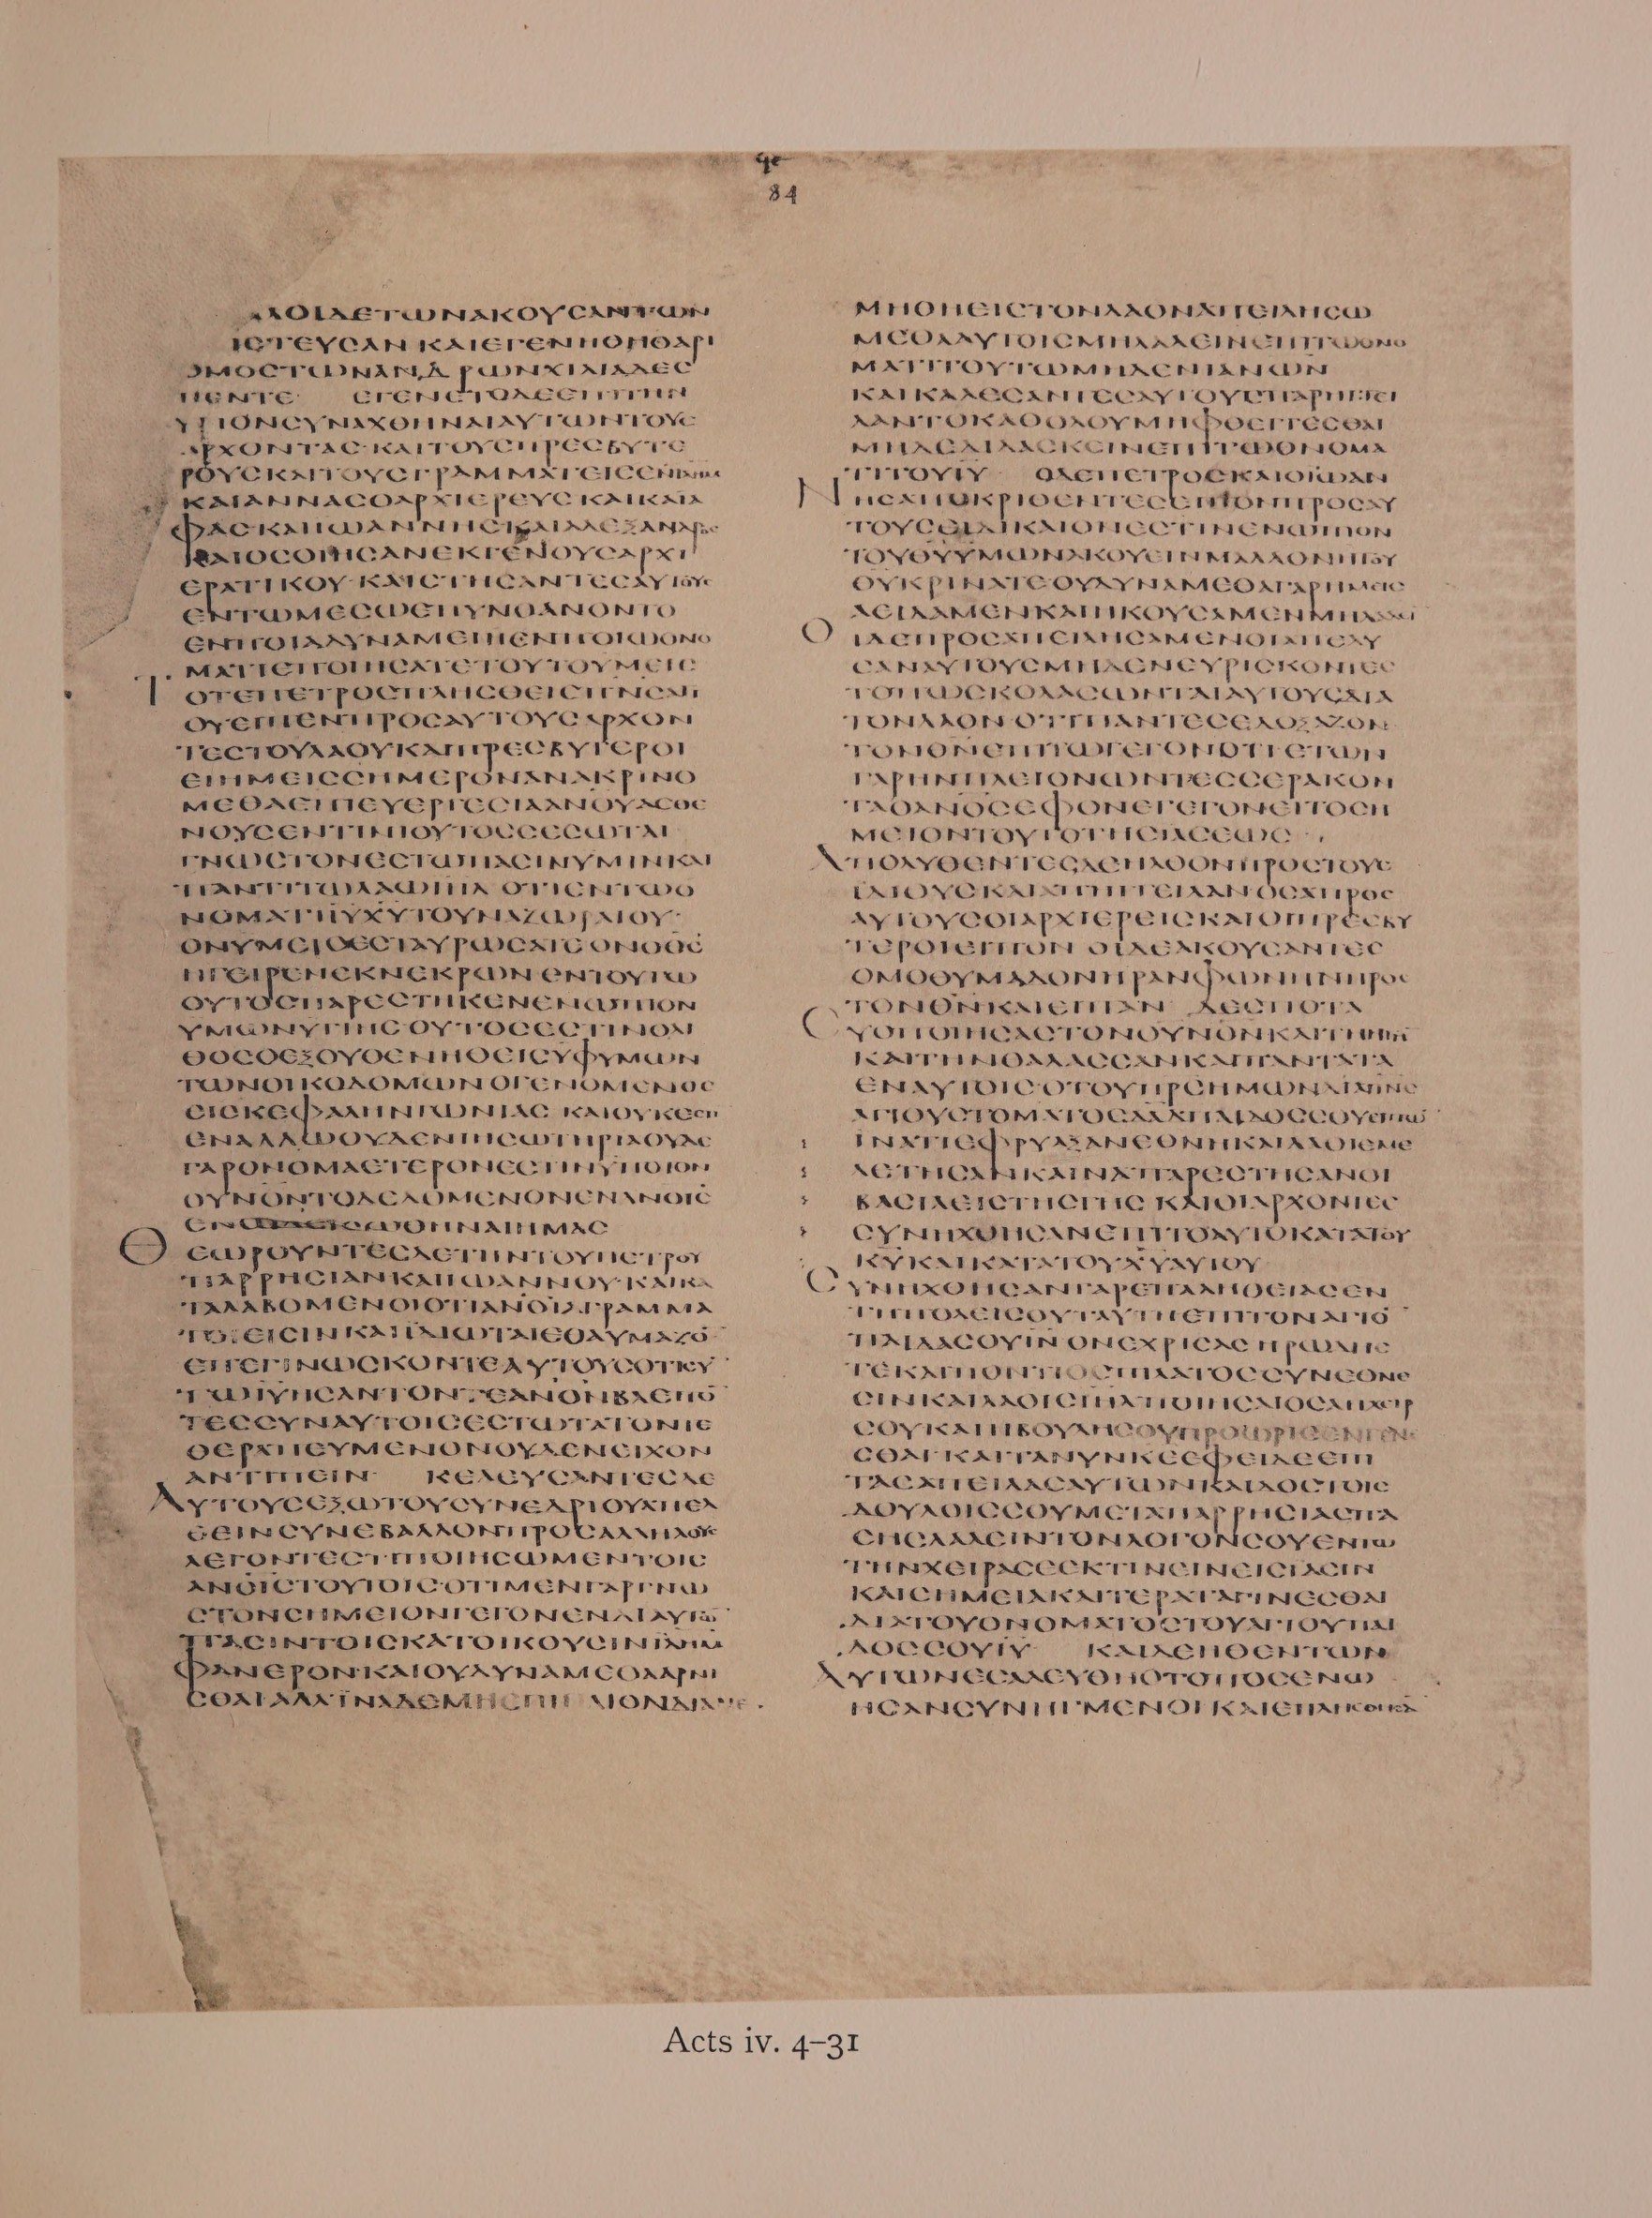 ϥε
84
ΛΛΟΙΔΕΤΩΝΑΚΟΥϹΑΝΤΩΝ
ΙϹΤΕΥϹΑΝ ΚΑΙΕΓΕΝΗΘΗΟΑΡΙ
ΘΜΟϹΤΩΝΑΝΔΡΩΝΧΙΛΙΑΔΕϹ
ΠΕΝΤΕ ΕΓΕΝΕΤΟΔΕΕΠΙΤΗΝ
ΥΡΙΟΝϹΥΝΑΧΘΗΝΑΙΑΥΤΩΝΤΟΥϹ
ΑΡΧΟΝΤΑϹ·ΚΑΙΤΟΥϹΠΡΕϹΒΥΤΕ
ΡΟΥϹΚΑΙΤΟΥϹΓΡΑΜΜΑΤΕΙϹΕΝΙΛΗΜ
ΚΑΙΑΝΝΑϹΟΑΡΧΙΕΡΕΥϹ ΚΑΙΚΑΪΑ
ΦΑϹΚΑΙΙΩΑΝΝΗϹΚΑΙΑΛΕΞΑΝΔΡΟϹ
ΚΑΙΟϹΟΙΗϹΑΝΕΚΓΕΝΟΥϹΑΡΧΙ
ΕΡΑΤΙΚΟΥ·ΚΑΙϹΤΗϹΑΝΤΕϹΑΥΤΟΥϹ
ΕΝΤΩΜΕϹΩΕΠΥΝΘΑΝΟΝΤΟ
ΕΝΠΟΙΑΔΥΝΑΜΕΙΗΕΝΠΟΙΩΟΝΟ
ΜΑΤΙΕΠΟΙΗϹΑΤΕΤΟΥΤΟΥΜΕΙϹ
ΤΟΤΕΠΕΤΡΟϹΠΛΗϹΘΕΙϹΠΝϹΑΓΙ
ΟΥΕΙΠΕΝΠΡΟϹΑΥΤΟΥϹΑΡΧΟΝ
ΤΕϹΤΟΥΛΑΟΥΚΑΙΠΡΕϹΒΥΤΕΡΟΙ
ΕΙΗΜΕΙϹϹΗΜΕΡΟΝΑΝΑΚΡΙΝΟ
ΜΕΘΑΕΠΙΕΥΕΡΓΕϹΙΑΑΝΟΥΑϹΘΕ
ΝΟΥϹΕΝΤΙΝΙΟΥΤΟϹϹΕϹΩΤΑΙ
ΓΝΩϹΤΟΝΕϹΤΩΠΑϹΙΝΥΜΙΝΚΑΙ
ΠΑΝΤΙΤΩΛΑΩΙΗΛ ΟΤΙΕΝΤΩΟ
ΝΟΜΑΤΙΙΥΧΥΤΟΥΝΑΖΩΡΑΙΟΥ·
ΟΝΥΜΕΙϹΕϹΤΑΥΡΩϹΑΤΕ ΟΝΟΘϹ
ΗΓΕΙΡΕΝΕΚΝΕΚΡΩΝ ΕΝΤΟΥΤΩ
ΟΥΤΟϹΠΑΡΕϹΤΗΚΕΝΕΝΩΠΙΟΝ
ΥΜΩΝΥΓΙΗϹ·ΟΥΤΟϹΕϹΤΙΝΟΛΙ
ΘΟϹΟΕΞΟΥΘΕΝΗΘΕΙϹΥΦΥΜΩΝ
ΤΩΝΟΙΚΟΔΟΜΩΝ ΟΓΕΝΟΜΕΝΟϹ
ΕΙϹΚΕΦΑΛΗΝΓΩΝΙΑϹ ΚΑΙΟΥΚΕϹΤΙ
ΕΝΑΛΛΩΟΥΔΕΝΙΗϹΩΤΗΡΙΑΟΥΔΕ
ΓΑΡΟΝΟΜΑΕΤΕΡΟΝΕϹΤΙΝΥΠΟΤΟΝ
ΟΥΝΟΝΤΟΔΕΔΟΜΕΝΟΝΕΝΑΝΟΙϹ
ΕΝΩΔΕΙϹΩΘΗΝΑΙΗΜΑϹ
ΘΕΩΡΟΥΝΤΕϹΔΕΤΗΝΤΟΥΠΕΤΡΟΥ
ΠΑΡΡΗϹΙΑΝΚΑΙΙΩΑΝΝΟΥ·ΚΑΙΚΑ
ΤΑΛΑΒΟΜΕΝΟΙΟΤΙΑΝΟΙΑΓΡΑΜΜΑ
ΤΟΙΕΙϹΙΝΚΑΙΙΔΙΩΤΑΙΕΘΑΥΜΑΖΟ
ΕΠΕΓΙΝΩϹΚΟΝΤΕΑΥΤΟΥϹΟΤΙϹΥ
ΤΩΙΥΗϹΑΝΤΟΝΤΕΑΝΟΝΒΛΕΠΟ
ΤΕϹϹΥΝΑΥΤΟΙϹΕϹΤΩΤΑΤΟΝΤΕ
ΘΕΡΑΠΕΥΜΕΝΟΝΟΥΔΕΝΕΙΧΟΝ
ΑΝΤΙΠΕΙΝ ΚΕΛΕΥϹΑΝΤΕϹΔΕ
ΑΥΤΟΥϹΕΞΩΤΟΥϹΥΝΕΔΡΙΟΥΑΠΕΛ
ΘΕΙΝϹΥΝΕΒΑΛΛΟΝΠΡΟϹΑΛΛΗΛΟΥϹ
ΛΕΓΟΝΤΕϹΤΙΠΟΙΗϹΩΜΕΝΤΟΙϹ
ΑΝΟΙϹΤΟΥΤΟΙϹ·ΟΤΙΜΕΝΓΑΡΓΝΩ
ϹΤΟΝϹΗΜΕΙΟΝΓΕΓΟΝΕΝΔΙΑΥΤΩ
ΠΑϹΙΝΤΟΙϹΚΑΤΟΙΚΟΥϹΙΝΙΛΗΜ
ΦΑΝΕΡΟΝ·ΚΑΙΟΥΔΥΝΑΜΕΘΑΑΡΝΙ
ϹΘΑΙ ΑΛΛΙΝΑΔΕΜΗΕΠΙΠΛΙΟΝΔΙΑΝΕ
ΜΗΘΗΕΙϹΤΟΝΛΑΟΝΑΠΕΙΛΗϹΩ
ΜΕΘΑΑΥΤΟΙϹΜΗΛΑΛΕΙΝΕΠΙΤΩΟΝΟ
ΜΑΤΙΤΟΥΤΩΜΗΔΕΝΙΑΝΩΝ
ΚΑΙΚΑΛΕϹΑΝΤΕϹΑΥΤΟΥϹΠΑΡΗΓΓΕΙ
ΛΑΝΤΟΚΑΘΟΛΟΥΜΗΦΘΕΓΓΕϹΘΑΙ
ΜΗΔΕΔΙΔΑϹΚΕΙΝΕΠΙΤΩΟΝΟΜΑ
ΤΙΤΟΥΙΥ ΟΔΕΠΕΤΡΟϹΚΑΙΟΙΩΑΝ
ΝΗϹΑΠΟΚΡΙΘΕΝΤΕϹΕΙΠΟΝΠΡΟϹΑΥ
ΤΟΥϹΕΙΔΙΚΑΙΟΝΕϹΤΙΝΕΝΩΠΙΟΝ
ΤΟΥΘΥΥΜΩΝΑΚΟΥΕΙΝΜΑΛΛΟΝΗΤΟΥ
ΘΥΚΡΙΝΑΤΕ·ΟΥΔΥΝΑΜΕΘΑΓΑΡΗΜΕΙϹ
ΑΕΙΔΑΜΕΝΚΑΙΗΚΟΥϹΑΜΕΝΜΗΛΑΛΕΙ
ΟΙΔΕΠΡΟϹΑΠΕΙΛΗϹΑΜΕΝΟΙΑΠΕΛΥ
ϹΑΝΑΥΤΟΥϹΜΗΔΕΝΕΥΡΙϹΚΟΝΤΕϹ
ΤΟΠΩϹΚΟΛΑϹΩΝΤΑΙΑΥΤΟΥϹΔΙΑ
ΤΟΝΛΑΟΝ·ΟΤΙΠΑΝΤΕϹΕΔΟΞΑΖΟΝ
ΤΟΝΘΝΕΠΙΤΩΓΕΓΟΝΟΤΙΕΤΩΝ
ΓΑΡΗΝΠΛΕΙΟΝΩΝΤΕϹϹΕΡΑΚΟΝ
ΤΑΟΑΝΟϹΕΦΟΝΕΓΕΓΟΝΕΙΤΟϹΗ
ΜΕΙΟΝΤΟΥΤΟΤΗϹΙΑϹΕΩϹ
ΑΠΟΛΥΘΕΝΤΕϹΔΕΗΛΘΟΝΠΡΟϹΤΟΥϹ
ΙΔΙΟΥϹΚΑΙΑΠΗΓΓΕΙΛΑΝΟϹΑΠΡΟϹ
ΑΥΤΟΥϹΟΙΑΡΧΙΕΡΕΙϹΚΑΙΟΙΠΡΕϹΒΥ
ΤΕΡΟΙΕΙΠΟΝ ΟΙΔΕΑΚΟΥϹΑΝΤΕϹ
ΟΜΟΘΥΜΑΔΟΝΗΡΑΝΦΩΝΗΝΠΡΟϹ
ΤΟΝΘΝΚΑΙΕΙΠΑΝ ΔΕϹΠΟΤΑ
ϹΥΟΠΟΙΗϹΑϹΤΟΝΟΥΝΟΝΚΑΙΤΗΝΓΗΝ
ΚΑΙΤΗΝΘΑΛΑϹϹΑΝΚΑΙΠΑΝΤΑΤΑ
ΕΝΑΥΤΟΙϹ·ΟΤΟΥΠΡϹΗΜΩΝΔΙΑΠΝϹ
ΑΓΙΟΥϹΤΟΜΑΤΟϹΔΑΔΠΑΙΔΟϹϹΟΥΕΙΠΩ
ΙΝΑΤΙΕΦΡΥΑΞΑΝΕΘΝΗΚΑΙΛΑΟΙΕΜΕ
ΛΕΤΗϹΑΝΚΑΙΝΑΠΑΡΕϹΤΗϹΑΝΟΙ
ΒΑϹΙΛΕΙϹΤΗϹΓΗϹ ΚΑΙΟΙΑΡΧΟΝΤΕϹ
ϹΥΝΗΧΘΗϹΑΝΕΠΙΤΟΑΥΤΟΚΑΤΑΤΟΥ
ΚΥΚΑΙΚΑΤΑΤΟΥΧΥΑΥΤΟΥ
ϹΥΝΗΧΘΗϹΑΝΓΑΡΕΠΑΛΗΘΕΙΑϹΕΝ
ΤΗΠΟΛΕΙϹΟΥΤΑΥΤΗΕΠΙΤΟΝΑΓΙΟ
ΠΑΙΔΑϹΟΥΙΝ ΟΝΕΧΡΙϹΑϹ ΗΡΩΔΗϹ
ΤΕΚΑΙΠΟΝΤΙΟϹΠΙΛΑΤΟϹϹΥΝΕΘΝΕ
ϹΙΝΚΑΙΛΑΟΙϹΙΗΛΠΟΙΗϹΑΙΟϹΑΗΧΕΙΡ
ϹΟΥΚΑΙΗΒΟΥΛΗϹΟΥΠΡΟΩΡΙϹΕΝΓΕΝΕ
ϹΘΑΙ·ΚΑΙΤΑΝΥΝΚΕΕΦΕΙΔΕΕΠΙ
ΤΑϹΑΠΕΙΛΑϹΑΥΤΩΝΚΑΙΔΟϹΤΟΙϹ
ΔΟΥΛΟΙϹϹΟΥΜΕΤΑΠΑΡΡΗϹΙΑϹΠΑ
ϹΗϹΛΑΛΕΙΝΤΟΝΛΟΓΟΝϹΟΥΕΝΤΩ
ΤΗΝΧΕΙΡΑϹΕΕΚΤΙΝΕΙΝΕΙϹΙΑϹΙΝ
ΚΑΙϹΗΜΕΙΑΚΑΙΤΕΡΑΤΑΓΙΝΕϹΘΑΙ
ΔΙΑΤΟΥΟΝΟΜΑΤΟϹΤΟΥΑΓΙΟΥΠΑΙ
ΔΟϹϹΟΥΙΥ ΚΑΙΔΕΗΘΕΝΤΩΝ
ΑΥΤΩΝΕϹΑΛΕΥΘΗΟΤΟΠΟϹΕΝΩ
ΗϹΑΝϹΥΝΗΓΜΕΝΟΙ ΚΑΙΕΠΛΗϹΘΗϹΑ
Acts iv. 4–31